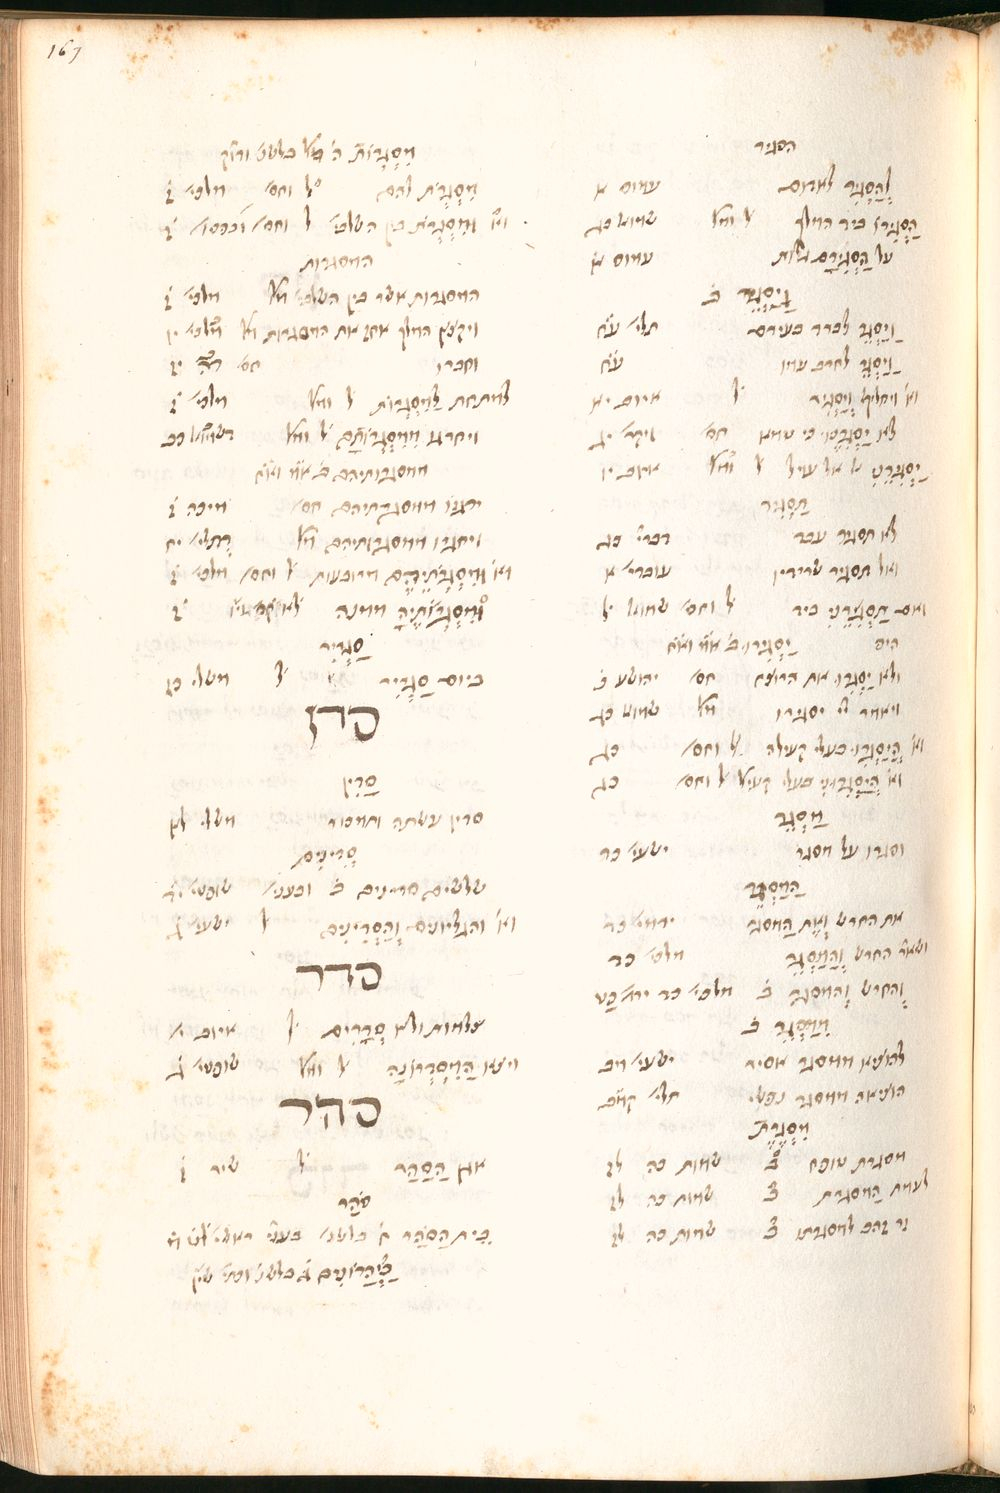 167
הסגיר
לְהַסְגִּיר לאדום עמוס א
הַסְגִּירוֹ ביד המלך ל ומל שמוא כג
על הַסְגִּירָם גלות עמוס א
וַיַּסְגֵּר ב
וַיַּסְגֵּר לברד בעירם תלי עח
וַיַּסְגֵּר לחרב עמו עח
וא יחלוף וְיַסְגִּיר ל איוב יא
לא יַסְגִּרֶנּוּ כי שמא חס ויקר יג
יַסְגִּירֵנִי אל אל עויל ל ומל איוב יו
תַסְגִּיר
לא תסגיר עבד דברי כג
ואל תסגיר שרידיו עובדי א
ואם תַסְגִּירֵנִי ביד ל וחס שמוא ל
היה יַסְגִּירוּ ב
ולא יַסְגִּרוּ את הרוצח חס יהושע כ
ויאמר יי יסגירו מל שמוא כג
וא הֲיַסְגִּרוּ בעלי קעילה ל וחס כג
וא הֲיַסְגִּרוּנִי בעלי קעיל ל וחס כג
מַסְגֵּר
וסגרו על מסגר ישעי כד
הַמַּסְגֵּר
את החרש וְאֶת הַמסגר ירמי כד
ושאר החרש וְהַמַּסְגֵּר מלכי כד
וְהחרש וְהמסגר ב מלכי כד ירמי כט
מִמַּסְגֵּר ב
להוציא ממסגר אסיר ישעי מב
הוציאה ממסגר נפשי תלי קמב
מִסְגֶּרֶת
מסגרת טופח ב שמות כה לז
לעמת המסגרת ב שמות כה לז
זר זהב למסגרתו ב שמות כה לז
מִסְגְּרוֹת ה מל בלשנ
מִסְגְּרֹת להם ל וחס מלכי ז
וא וּמִסְגְּרֹת בין השלבי ל וחס ז
המסגרות
המסגרות אשר בין השלבי מל מלכי ז
ויקצץ המלך אחז את המסגרות מל מלכי יו
וחברו חס יו
למתחת לַמִּסְגְּרוֹת ל ומל מלכי ז
ויחרגו מִמִּסְגְּרוֹתָם ל ומל כב
ממסגרותיהם ב
ירגזו ממסגרתיהם חס מיכה ז
ויחרגו ממסגרותיהם מל תלי יח
וא וּמִסְגְּרֹתֵיהֶם מרובעות ל וחס מלכי ז
וּמִסְגְּרוֹתֶיהָ ז
סַגְרִיר
ביום סַגְרִיר ל משלי כז
סדן
סָדִין
סדין עשתה ותמכור משלי לא
סְדִינִים
שלשים סדינים ב שופטי יד
וא והגליונים וְהַסְּדִינִים ל ישעי ג
סדר
צלמות ולא סְדָרִים ל איוב י
ויצא הַמִּסְדְּרוֹנָה ל ומל שופטי ג
סהר
אגן הַסַּהַר ל שיר ז
סֹהַר
בֵּית הַסֹּהַר